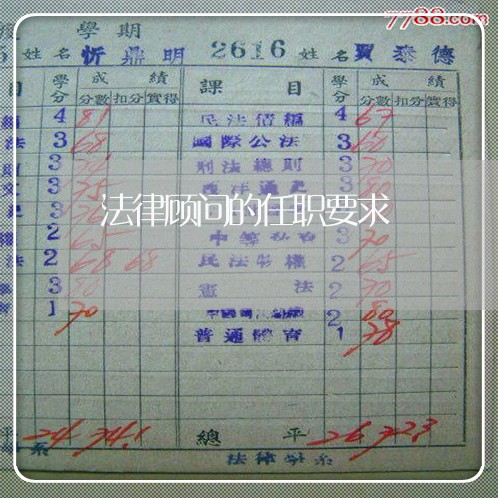 7788.com
學期
姓名 忻鼎明 2616 姓名 賈泰德
目 學分 成績 課目 學分 成績
分數 扣分 實得 分數 扣分 實得
4 81 民法債編 4 67
法 3 68 國際公法 3 60
3 刑法總則 3 70
3 75 西洋通史 3 80
法律顾问的任职要求
2 65 3 70
法 2 68 68 民法物權 2 65
3 80 憲法 2 70
1 70 2 80
普通體育 1 78
平 24 74.1 總平 26 72.3
系 法律學系